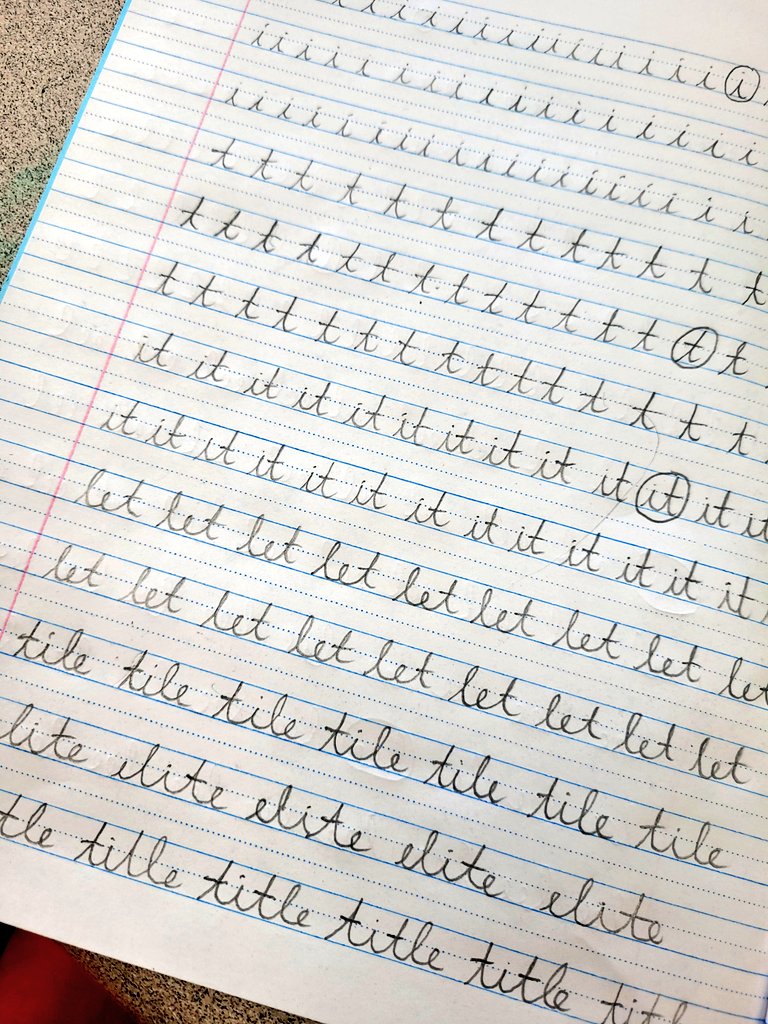 i i i i i i i i i i i i i i i i i
i i i i i i i i i i i i i i i i i i i i
i i i i i i i i i i i i i i i i i i i i
t t t t t t t t t t t t t
t t t t t t t t t t t t t t t
t t t t t t t t t t t t t t t
it it it it it it it it it it it it it
it it it it it it it it it it it it it
let let let let let let let let let
let let let let let let let let let
tile tile tile tile tile tile tile
lite elite elite elite elite
tle title title title title titl